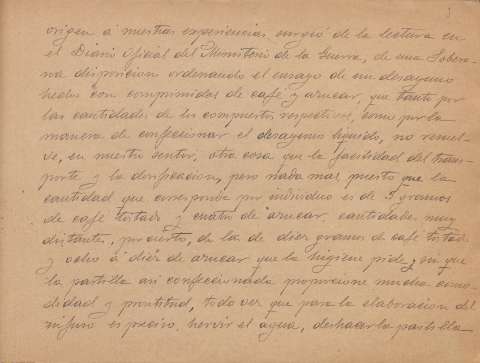 origen á nuestras experiencias surgió de la lectura en
el Diario Oficial del Ministerio de la Guerra, de una Sobera-
na disposicion ordenando el ensayo de un desayuno
hecho con comprimidos de café y azucar, que tanto por
las cantidades de los compuestos respectivos, como por la
manera de confeccionar el desayuno liquido, no resuel-
ve, en nuestro sentir, otra cosa que la facilidad del trans-
porte y la dosificacion, pero nada mas, puesto que la
cantidad que corresponde por individuo es de 5 gramos
de café tostado y cuatro de azucar, cantidades muy
distante, por cierto, de la de diez gramos de café tostado
y ocho á diez de azucar que la higiene pide, sin que
la pastilla asi confeccionada proporcione mucha como-
didad y prontitud, toda vez que para la elaboracion del
infuso es preciso, hervir el agua, deshacer la pastilla